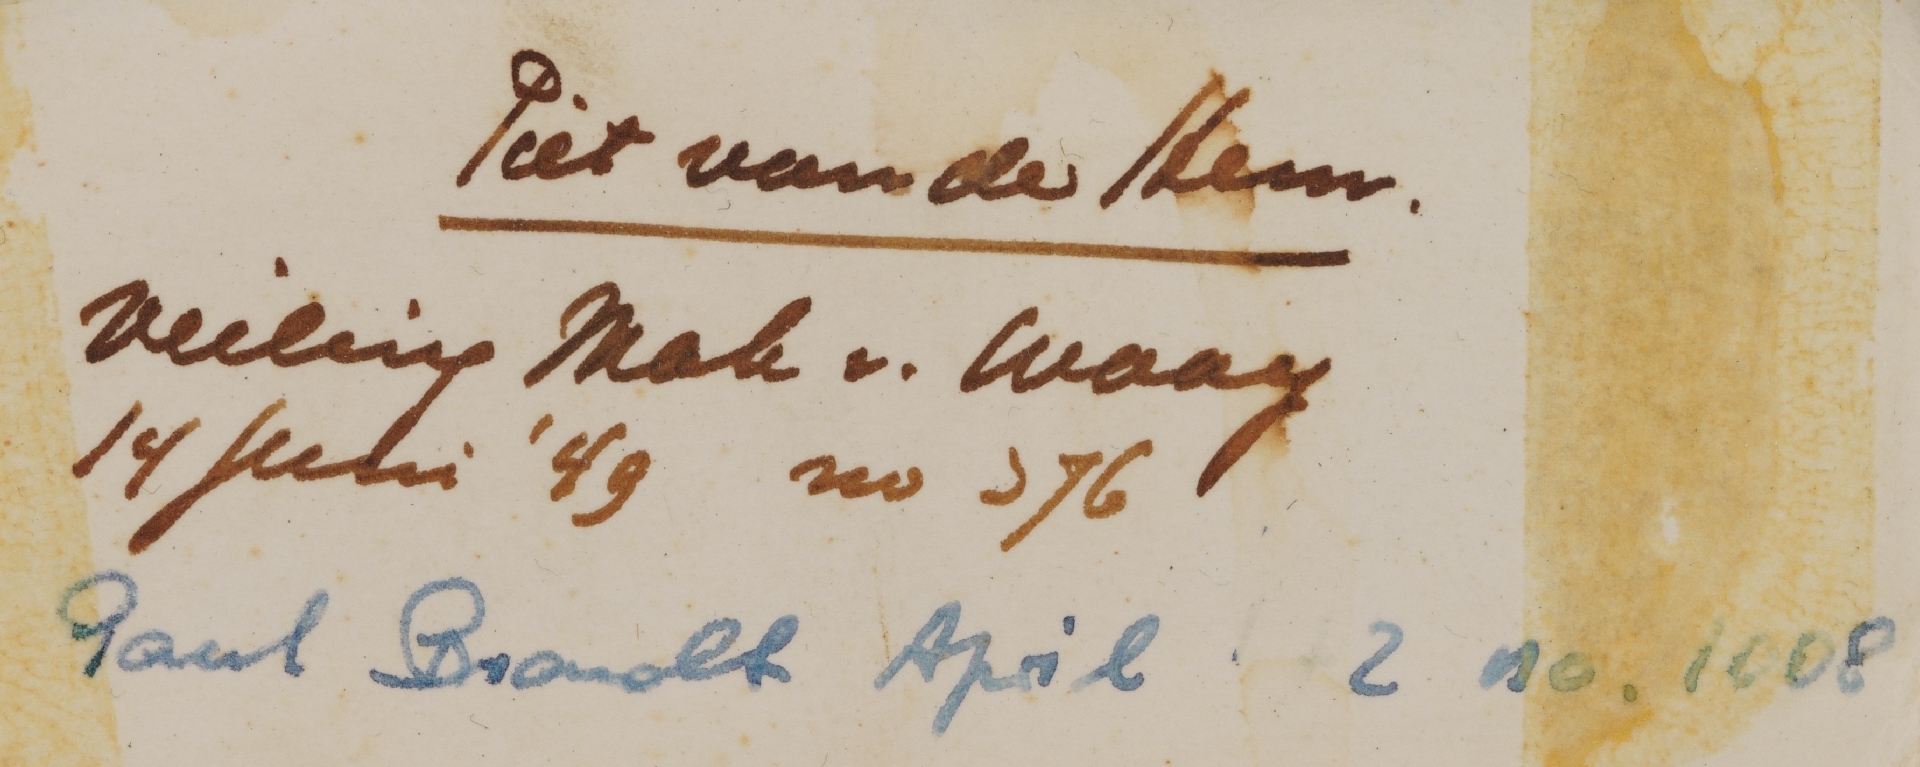 Piet van de Hem.
Veiling Mak v. Waay
14 Juni '49 no 376
Paul Brandt April ' 2 no. 1008